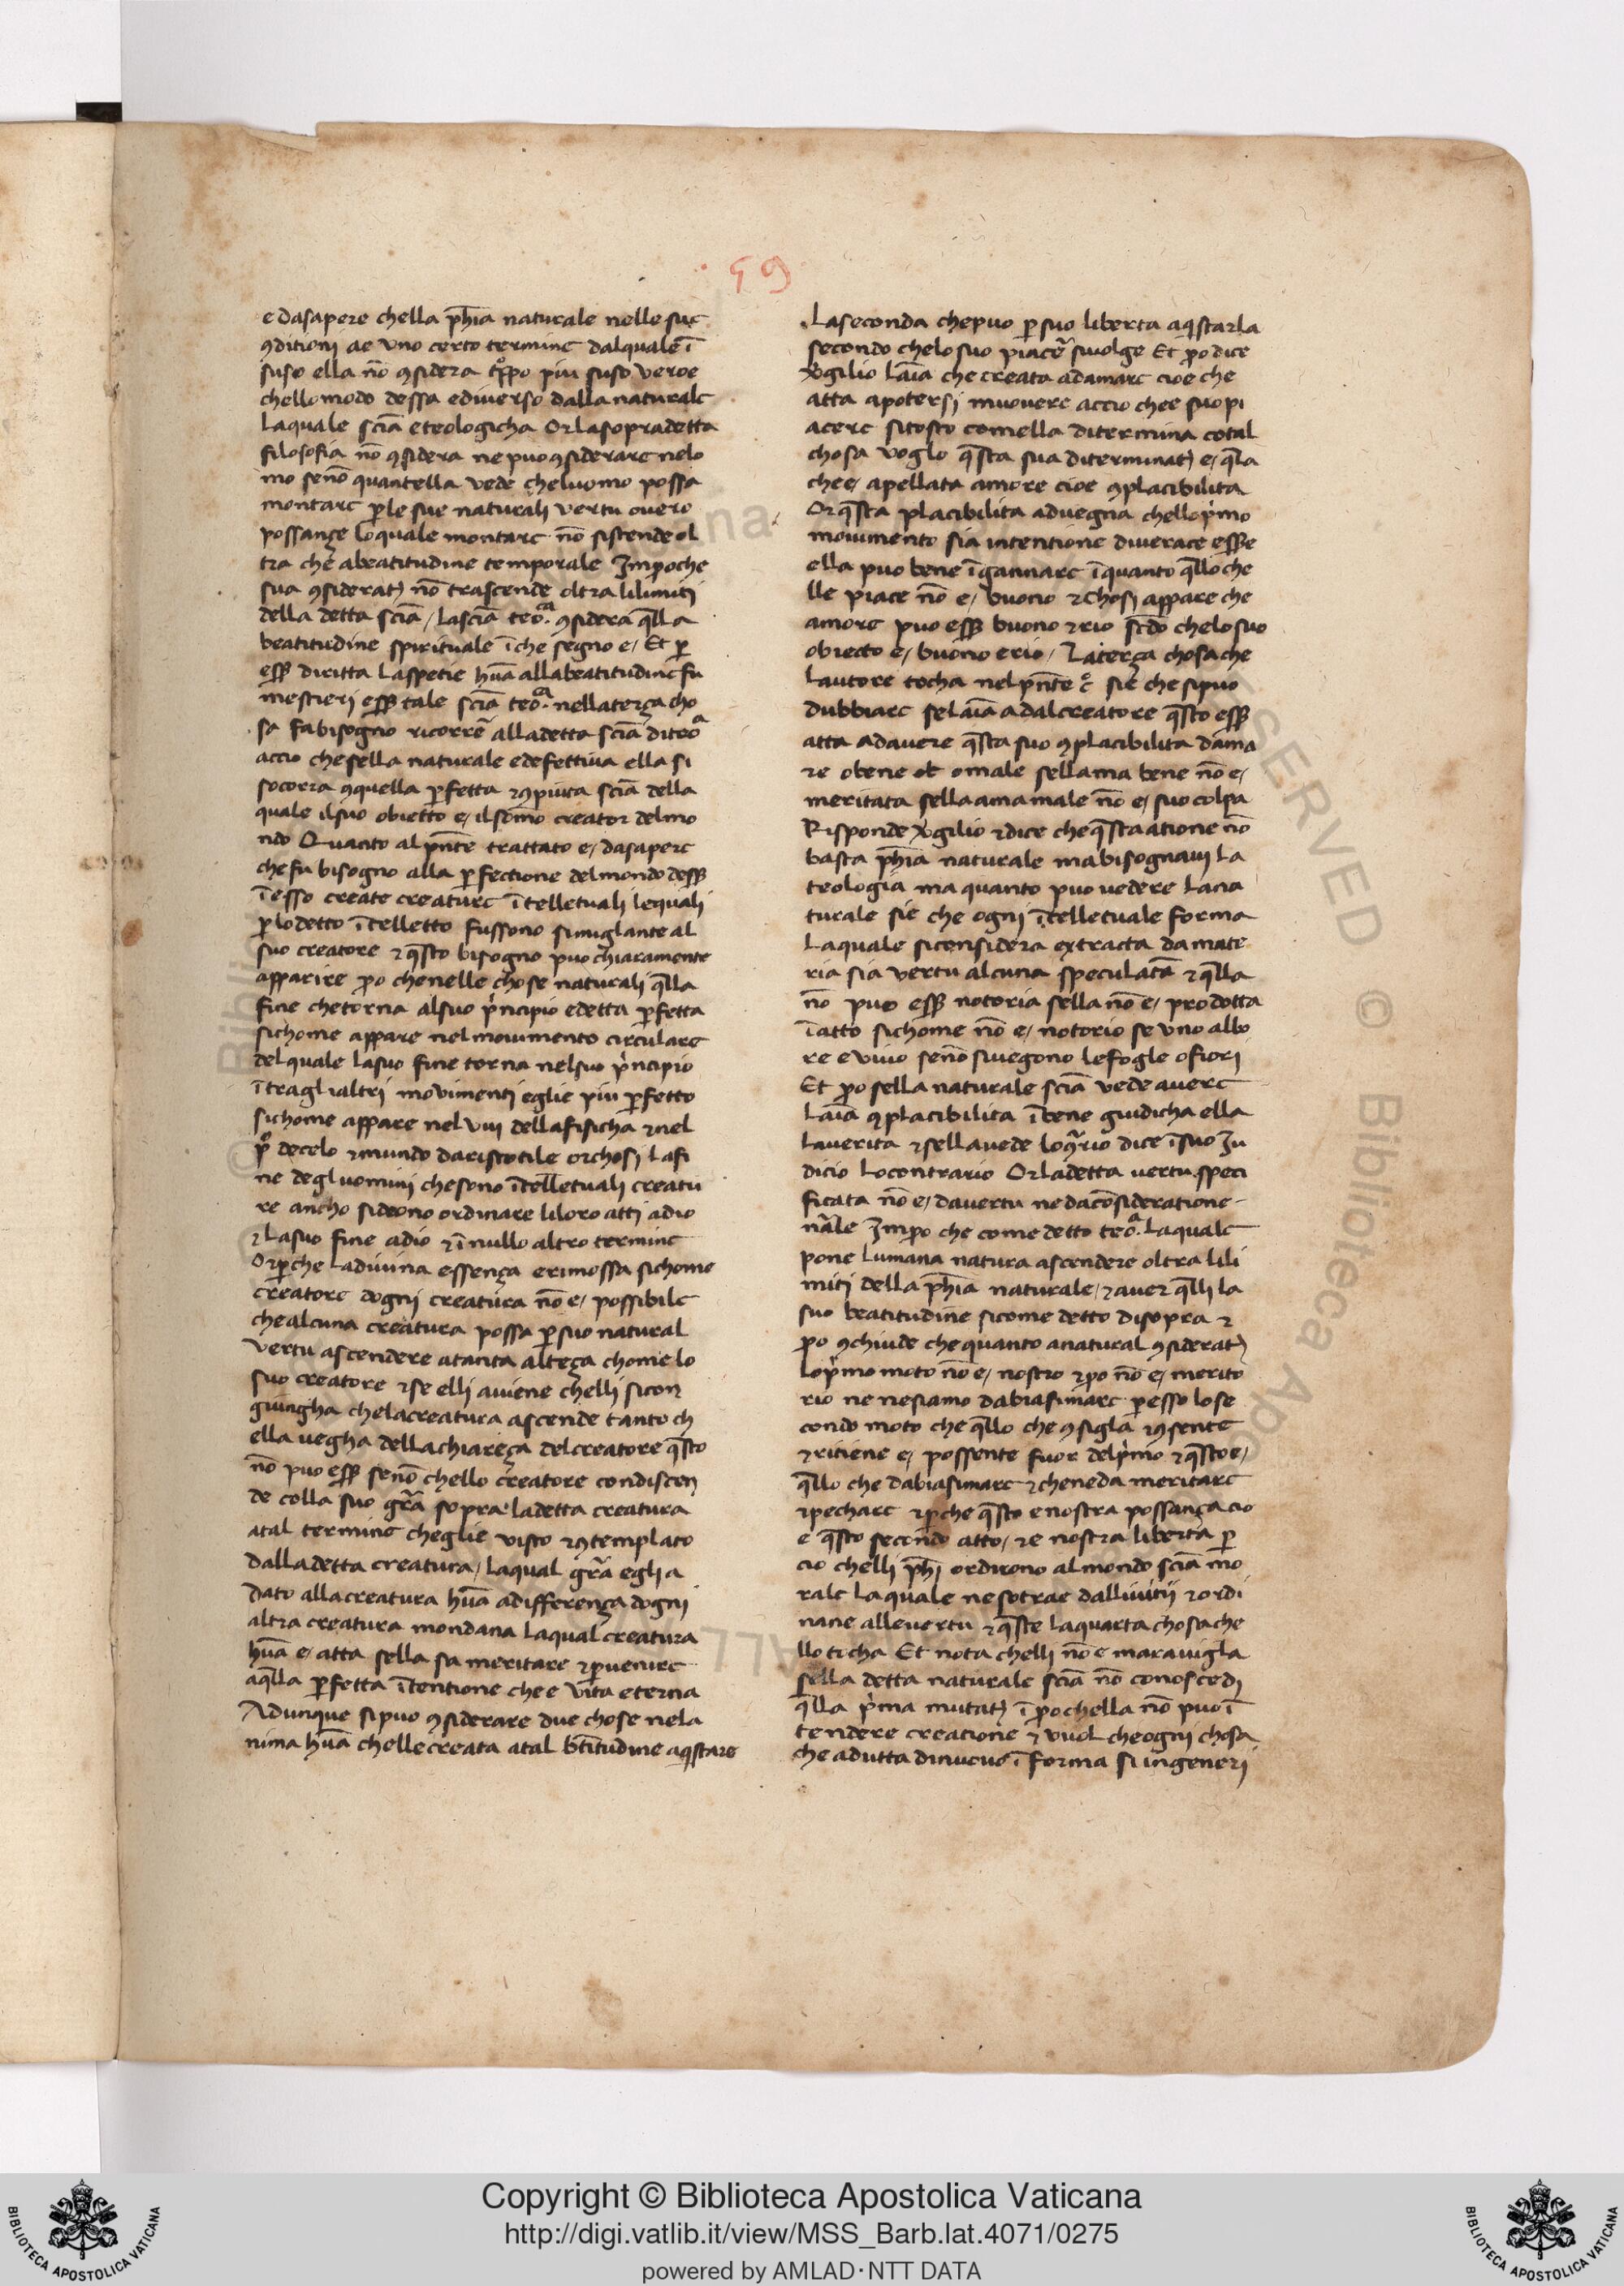 59
e dasapere chella ph̄ia naturale nelle sue
ꝯditioni ae uno certo termine dalquale ī
suso ella nō ꝯsidera tr̄po piu suso veroe
chellomodo dessa ediverso dalla naturale
laquale sciā e teologicha Or lasopradetta
filosofia nō ꝯsidera ne puo ꝯsiderare nelo
mo senō quantella vede cheluomo possa
montare ꝑ le sue naturali vertu overo
possançe loquale montare nō sistende ol
tra che abeatitudine temporale Impoche
sua ꝯsideratꝫ nō trascende oltra lilimiti
della detta sciā / lasciā teo.ᵃ ꝯsidera q̄lla
beatitudine spirituale ī che segno e / Et ꝑ
eēr diritta laspetie hūa allabeatitudine fu
mestieri eēr tale sciā teo.ᵃ nellaterça cho
sa fabisogno ricorrē alladetta sciā diteoᵃ
accio chesella naturale edefettiva ella si
socorra ꝯquella ꝑfetta ⁊ ꝯpiuta sciā della
quale ilsuo obietto e / ilsōmo creator delmo
ndo Quanto al pn̄te trattato e / dasapere
chefu bisogno alla ꝑfectione delmondo deēr
ī esso create creature ītelletuali lequali
ꝑlodetto ītelletto fussono simiglante al
suo creatore ⁊ q̄sto bisogno puo chiaramente
apparire ꝑo chenelle chose naturali q̄lla
fine chetorna alsuo pⁱncipio edetta ꝑfetta
sichome appare nelmovimento circulare
delquale lasuo fine torna nelsuo pⁱncipio
ītraglialtri movimenti eglie piu ꝑfetto
sichome appare nel viii dellafisicha ⁊ nel
pº decelo ⁊ mundo daristotile orchosi lafi
ne degluomini chesono ītelletuali creatu
re ancho sideono ordinare liloro atti adio
⁊ lasuo fine adio ⁊ ī nullo altro termine
Orꝑche ladivina essença erimossa sichome
creatore dogni creatura nō e / possibile
chealcuna creatura possa ꝑsuo natural
vertu ascendere atanta alteça chome lo
suo creatore ⁊ se elli aviene chelli sicon
giungha chelacreatura ascende tanto ch
ella vegha dellachiareça delcreatore q̄sto
nō puo eēr senō chello creatore condiscen
de colla suo grā sopra ladetta creatura
atal termine cheglie visto ⁊ ꝯtemplato
dalladetta creatura / laqual grā egli a
dato allacreatura hūa adifferença dogni
altra creatura mondana laqual creatura
hūa e / atta sella sa meritare ⁊ ꝑvenire
aq̄lla ꝑfetta ītentione che e vita eterna
Adunque sipuo ꝯsiderare due chose nela
nima hūa chellecreata atal bt̄itudine aqistare
Laseconda chepuo ꝑsuo liberta aqistarla
secondo chelosuo piacē sivolge Et ꝑo dice
Vgilio lāia che creata adamare cioe che
atta apotersi muovere accio chee suopi
acere sitosto comella ditermina cotal
chosa voglo q̄sta sua diterminatꝫ e / q̄la
chee / apellata amore cioe ꝯplacibilita
Or q̄sta placibilita advegna chellopⁱmo
movimento sia intentione diverace eēre
ella puo bene īgannare īquanto q̄llo che
lle piace nō e / buono ⁊ chosi appare che
amore puo eēr buono ⁊ rio sc̄do chelosuo
obiecto e / buono e rio / Laterça chosa che
lautore tocha nelpn̄te c̊ sie che sipuo
dubbiare selāia a dalcreatore q̄sto eēr
atta adavere q̄sta suo ꝯplacibilita dama
re obene o omale sellama bene nō e /
meritata sella ama male nō e / suo colpa
Risponde Vgilio ⁊ dice cheq̄sta atione nō
basta ph̄ia naturale mabisognavi la
teologia ma quanto puo vedere lana
turale sie che ogni ītelletuale forma
laquale siconsidera extracta da mate
ria sia vertu alcuna speculatā ⁊ q̄lla
nō puo eēr notoria sella nō e / prodotta
ī atto sichome nō e / notorio se uno albo
re e vivo senō sivegono lefogle ofiori
Et ꝑo sella naturale sciā vede avere
lāia ꝯplacibilita ī bene giudicha ella
laverita ⁊ sellavede loꝯrio dice īsuo Iu
dicio locontrario Orladetta vertu speci
ficata nō e / davertu nedacōsideratione
nāle Impo che come detto teo.ᵃ laquale
pone lumana natura ascendere oltra lili
miti della ph̄ia naturale / ⁊ aver q̄lli la
suo beatitudine sicome detto disopra ⁊
ꝑo ꝯchiude che quanto anatural ꝯsideratꝫ
lopⁱmo moto nō e / nostro ⁊ ꝑo nō e / merito
rio ne nesiamo dabiasimare ꝑesso lose
condo moto che q̄llo che ꝯsigla ⁊ ꝯsente
⁊ ritiene e / possente fuor delpⁱmo ⁊ q̄stoe /
q̄llo che dabiasimare ⁊ cheneda meritare
⁊ pechare ⁊ ꝑche q̄sto e nostra possança cio
e q̄sto secondo atto / ⁊ e nostra liberta ꝑ
cio chelli ph̄i ordirono almondo sciā mo
rale laquale ne sotrae dallivitii ⁊ ordi
nane allevertu ⁊ q̄ste laquarta chosache
llo ticha Et nota chelli nō e maravigla
sella detta naturale sciā nō conoscedi
q̄lla pⁱma mutatꝫ ī ꝑochella nō puo ī
tendere creatione ⁊ vuol cheogni chosa
che adutta dinuovo ī forma si ingeneri
Copyright © Biblioteca Apostolica Vaticana
http://digi.vatlib.it/view/MSS_Barb.lat.4071/0275
powered by AMLAD·NTT DATA
BIBLIOTECA APOSTOLICA VATICANA
BIBLIOTECA APOSTOLICA VATICANA